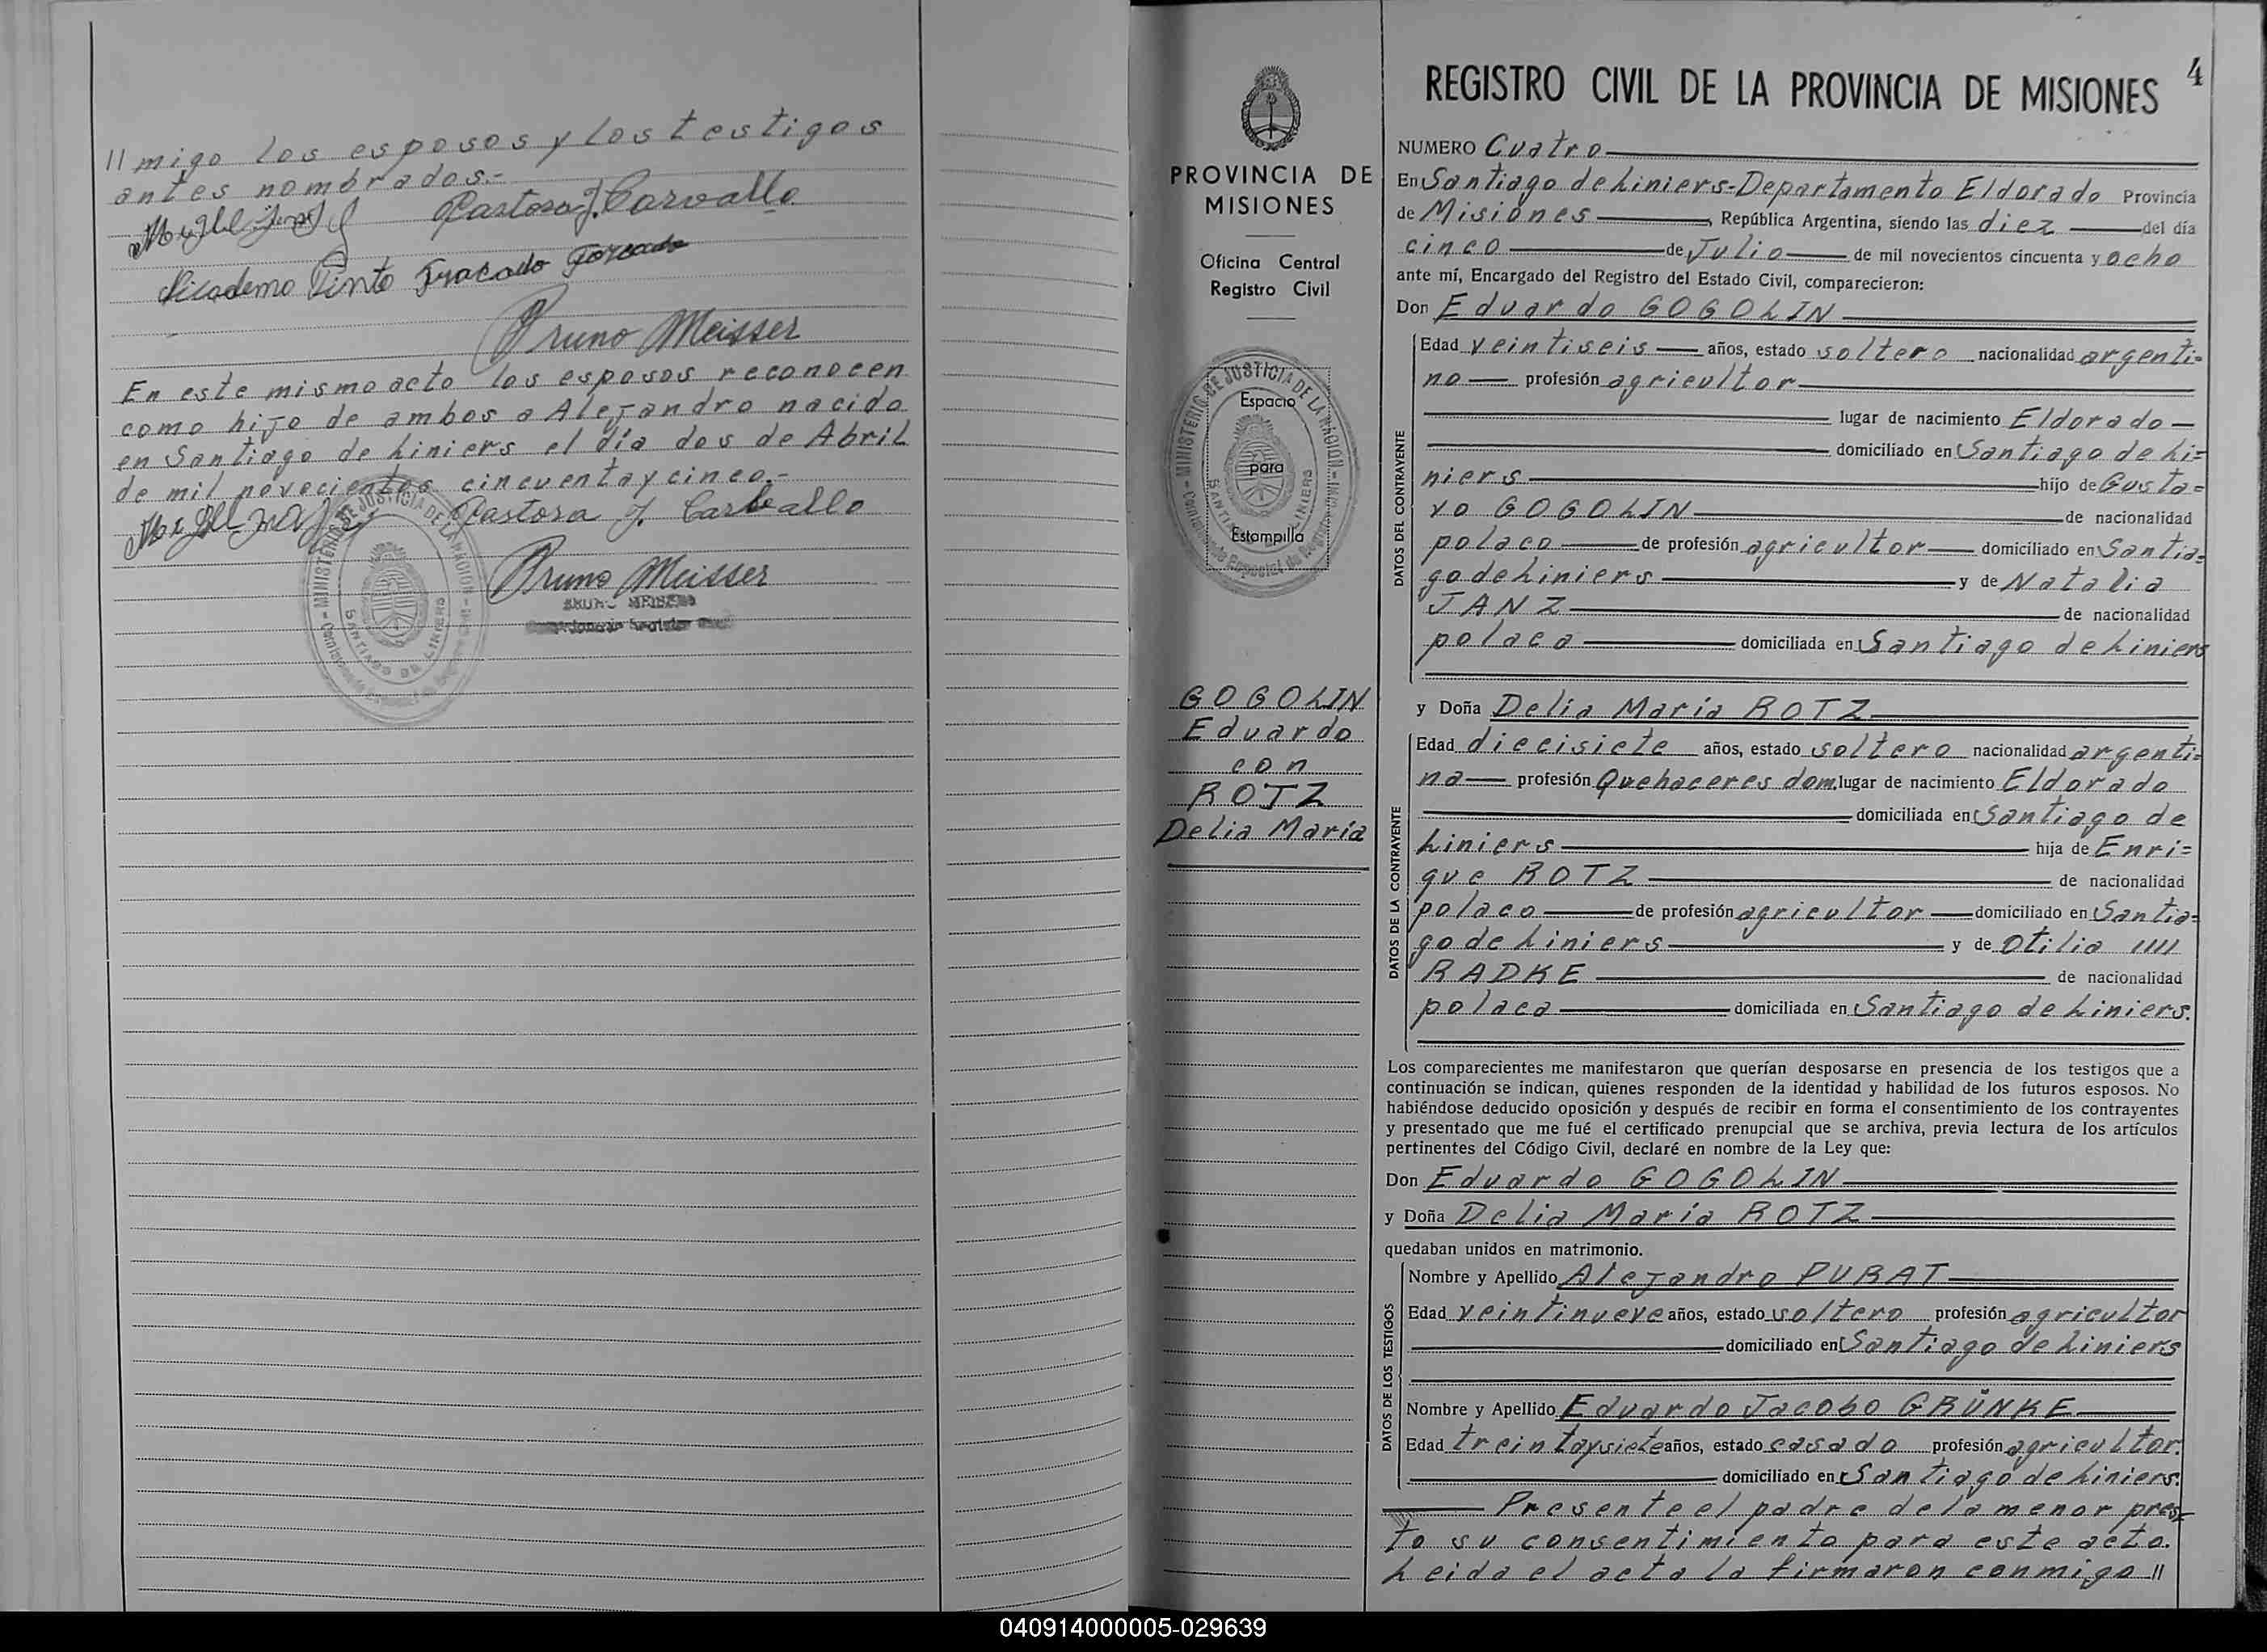 // migo los esposos y los testigos
antes nombrados.-
Pastora J. Carvallo
Nicodemo Pinto
Bruno Meisser
En este mismo acto los esposos reconocen
como hijo de ambos a Alejandro nacido
en Santiago de Liniers el día dos de Abril
de mil novecientos cincuenta y cinco.-
Pastora J. Carballo
Bruno Meisser
MINISTERIO DE JUSTICIA DE LA NACION
SANTIAGO DE LINIERS
PROVINCIA DE
MISIONES
Oficina Central
Registro Civil
MINISTERIO DE JUSTICIA DE LA NACION
Espacio
para
Estampilla
SANTIAGO DE LINIERS
GOGOLIN
Eduardo
con
ROTZ
Delia María
4
REGISTRO CIVIL DE LA PROVINCIA DE MISIONES
NUMERO Cuatro
En Santiago de Liniers-Departamento Eldorado Provincia
de Misiones, República Argentina, siendo las diez del día
cinco de Julio de mil novecientos cincuenta y ocho
ante mí, Encargado del Registro del Estado Civil, comparecieron:
Don Eduardo GOGOLIN
DATOS DEL CONTRAYENTE
Edad veintiseis años, estado soltero nacionalidad argenti=
no profesión agricultor
lugar de nacimiento Eldorado
domiciliado en Santiago de Li=
niers hijo de Gusta=
vo GOGOLIN de nacionalidad
polaco de profesión agricultor domiciliado en Santia=
go de Liniers y de Natalia
JANZ de nacionalidad
polaca domiciliada en Santiago de Liniers
y Doña Delia María ROTZ
DATOS DE LA CONTRAYENTE
Edad diecisiete años, estado soltero nacionalidad argenti=
na profesión Quehaceres dom. lugar de nacimiento Eldorado
domiciliada en Santiago de
Liniers hija de Enri=
que ROTZ de nacionalidad
polaco de profesión agricultor domiciliado en Santia=
go de Liniers y de Otilia
RADKE de nacionalidad
polaca domiciliada en Santiago de Liniers.
Los comparecientes me manifestaron que querían desposarse en presencia de los testigos que a
continuación se indican, quienes responden de la identidad y habilidad de los futuros esposos. No
habiéndose deducido oposición y después de recibir en forma el consentimiento de los contrayentes
y presentado que me fué el certificado prenupcial que se archiva, previa lectura de los artículos
pertinentes del Código Civil, declaré en nombre de la Ley que:
Don Eduardo GOGOLIN
y Doña Delia María ROTZ
quedaban unidos en matrimonio.
DATOS DE LOS TESTIGOS
Nombre y Apellido Alejandro PURAT
Edad veintinueve años, estado soltero profesión agricultor
domiciliado en Santiago de Liniers
Nombre y Apellido Eduardo Jacobo GRÜNKE
Edad treintaysiete años, estado casado profesión agricultor.
domiciliado en Santiago de Liniers.
Presente el padre de la menor pres=
to su consentimiento para este acto.
Leida el acta la firmaron conmigo //
040914000005-029639